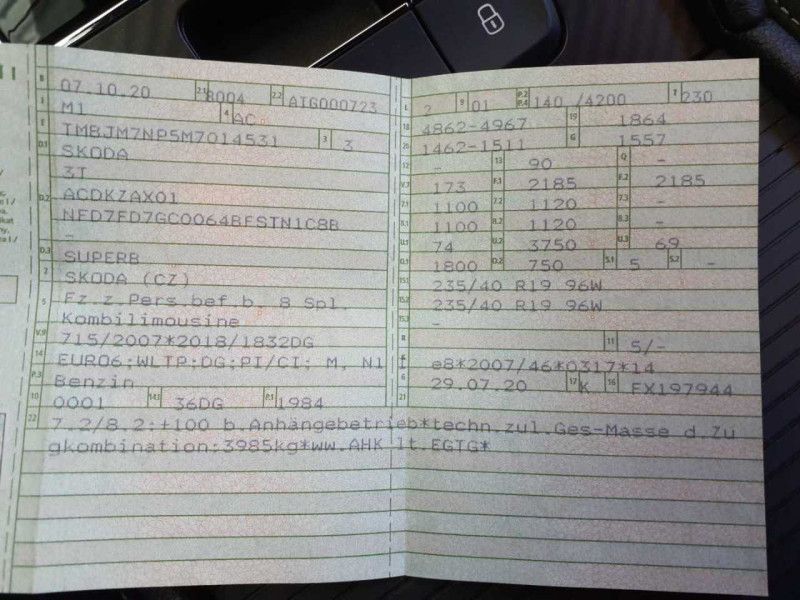 B 07.10.20 2.1 8004 2.2 AIG000723
J M1 4 AC
E TMBJM7NP5M7014531 3 3
D.1 SKODA
3T
D.2 ACDKZAX01
NFD7FD7GC0064BFSTN1C8B
-
D.3 SUPERB
2 SKODA (CZ)
5 Fz.z.Pers.bef.b. 8 Spl.
Kombilimousine
V.9 715/2007*2018/1832DG
14 EURO6;WLTP;DG;PI/CI; M, N1 I
P.3 Benzin
10 0001 14.1 36DG P.1 1984
L 2 9 01 P.2 P.4 140 /4200 T 230
18 4862-4967 19 1864
20 1462-1511 G 1557
12 - 13 90 Q -
V.7 173 F.1 2185 F.2 2185
7.1 1100 7.2 1120 7.3 -
8.1 1100 8.2 1120 8.3 -
U.1 74 U.2 3750 U.3 69
O.1 1800 O.2 750 S.1 5 S.2 -
15.1 235/40 R19 96W
15.2 235/40 R19 96W
15.3 -
R 11 5/-
K e8*2007/46*0317*14
6 29.07.20 17 K 16 FX197944
21
22 7.2/8.2:+100 b.Anhängebetrieb*techn.zul.Ges-Masse d.Zu
gkombination:3985kg*ww.AHK lt.EGTG*